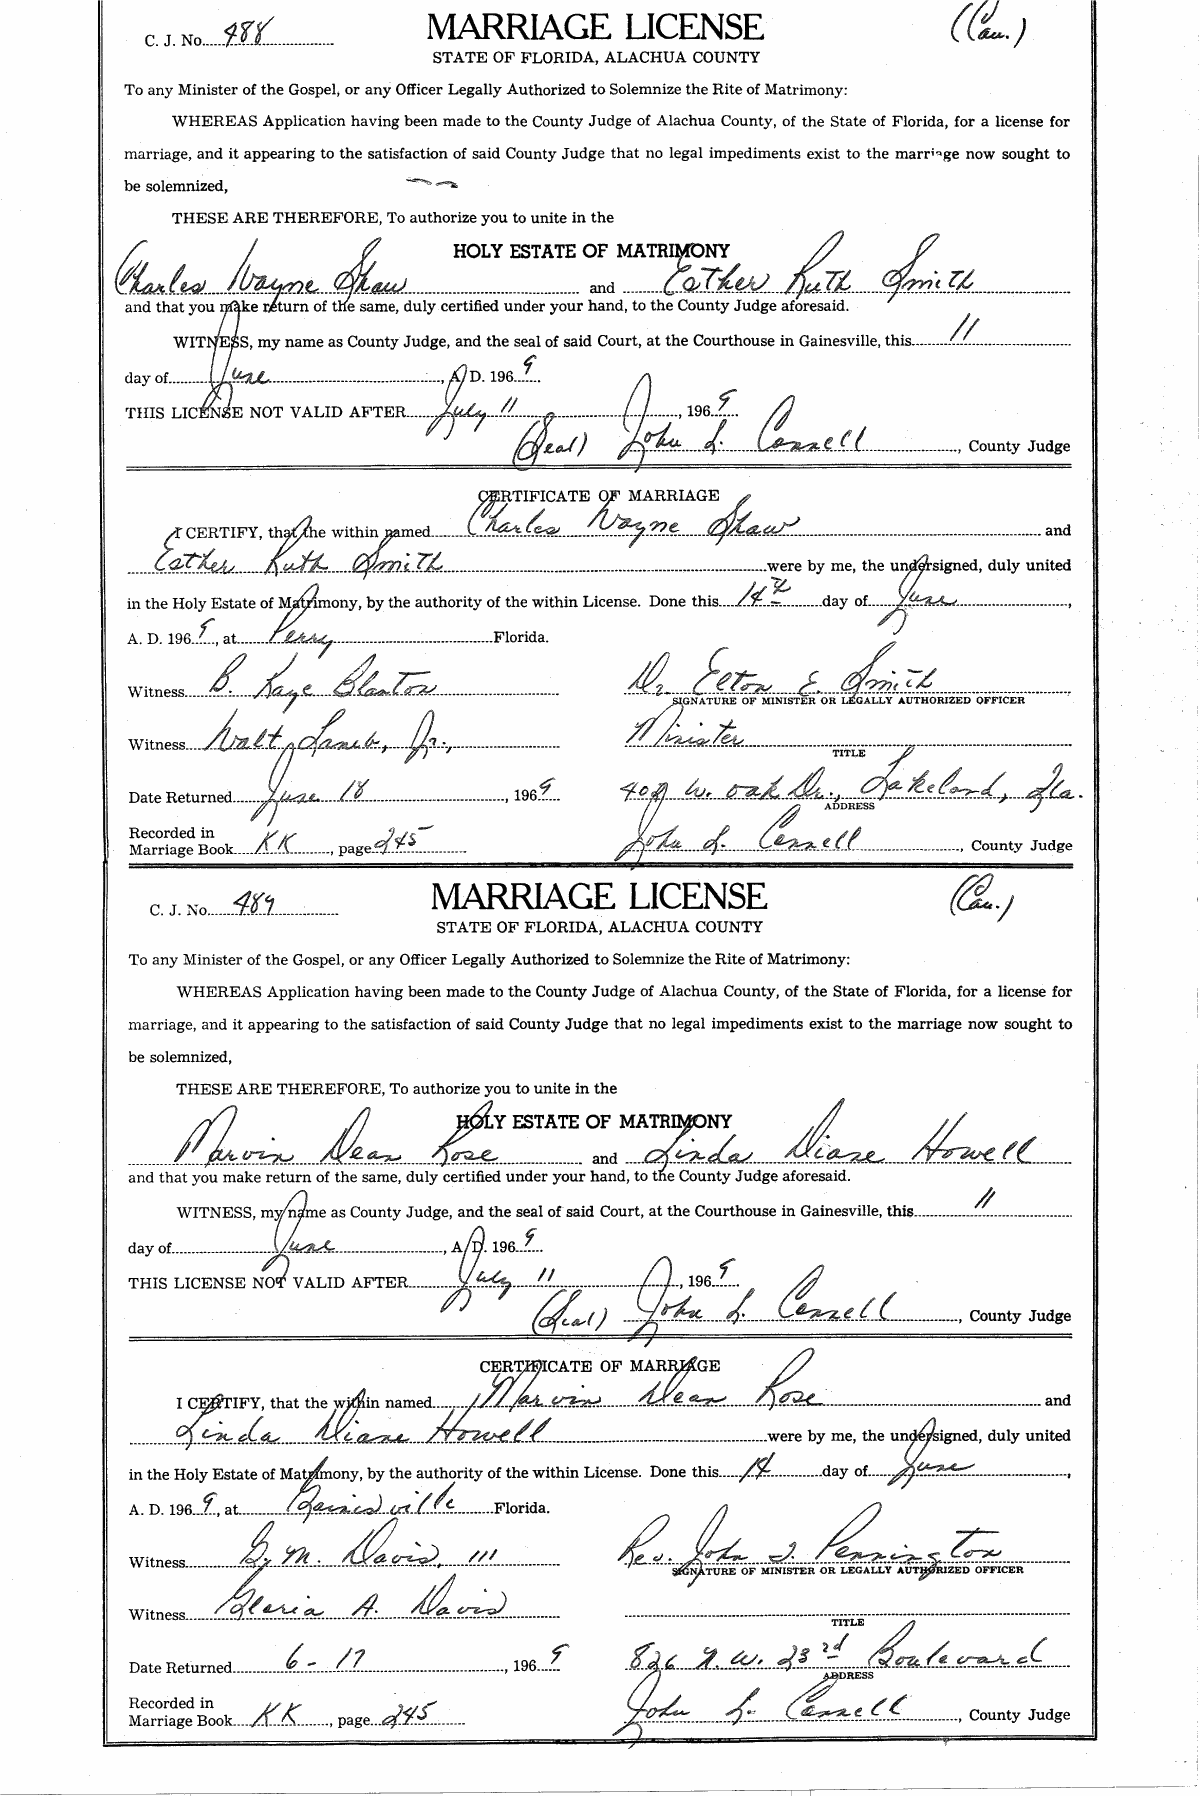 C. J. No. 488 MARRIAGE LICENSE (Cau.)
STATE OF FLORIDA, ALACHUA COUNTY
To any Minister of the Gospel, or any Officer Legally Authorized to Solemnize the Rite of Matrimony:
WHEREAS Application having been made to the County Judge of Alachua County, of the State of Florida, for a license for
marriage, and it appearing to the satisfaction of said County Judge that no legal impediments exist to the marriage now sought to
be solemnized,
THESE ARE THEREFORE, To authorize you to unite in the
HOLY ESTATE OF MATRIMONY
Charles Wayne Shaw and Esther Ruth Smith
and that you make return of the same, duly certified under your hand, to the County Judge aforesaid.
WITNESS, my name as County Judge, and the seal of said Court, at the Courthouse in Gainesville, this 11
day of June, A. D. 1969
THIS LICENSE NOT VALID AFTER July 11, 1969
(Seal) John L. Connell, County Judge
CERTIFICATE OF MARRIAGE
I CERTIFY, that the within named Charles Wayne Shaw and
Esther Ruth Smith were by me, the undersigned, duly united
in the Holy Estate of Matrimony, by the authority of the within License. Done this 14th day of June,
A. D. 1969, at Perry Florida.
Witness B. Kaye Blanton Dr. Elton E. Smith
SIGNATURE OF MINISTER OR LEGALLY AUTHORIZED OFFICER
Witness Walt, Jr., Minister
TITLE
Date Returned June 18, 1969 W. Oak Dr., Lakeland, Fla.
ADDRESS
Recorded in
Marriage Book KK, page 245 John L. Connell, County Judge
C. J. No. 489 MARRIAGE LICENSE (Cau.)
STATE OF FLORIDA, ALACHUA COUNTY
To any Minister of the Gospel, or any Officer Legally Authorized to Solemnize the Rite of Matrimony:
WHEREAS Application having been made to the County Judge of Alachua County, of the State of Florida, for a license for
marriage, and it appearing to the satisfaction of said County Judge that no legal impediments exist to the marriage now sought to
be solemnized,
THESE ARE THEREFORE, To authorize you to unite in the
HOLY ESTATE OF MATRIMONY
Marvin Dean Rose and Linda Diane Howell
and that you make return of the same, duly certified under your hand, to the County Judge aforesaid.
WITNESS, my name as County Judge, and the seal of said Court, at the Courthouse in Gainesville, this 11
day of June, A. D. 1969
THIS LICENSE NOT VALID AFTER July 11, 1969
(Seal) John L. Connell, County Judge
CERTIFICATE OF MARRIAGE
I CERTIFY, that the within named Marvin Dean Rose and
Linda Diane Howell were by me, the undersigned, duly united
in the Holy Estate of Matrimony, by the authority of the within License. Done this 14 day of June,
A. D. 1969, at Gainesville Florida.
Witness G. M. Davis, III Rev. John J. Pennington
SIGNATURE OF MINISTER OR LEGALLY AUTHORIZED OFFICER
Witness Gloria A. Davis
TITLE
Date Returned 6-17, 1969 826 N.W. 23rd Boulevard
ADDRESS
Recorded in
Marriage Book KK, page 245 John L. Connell, County Judge